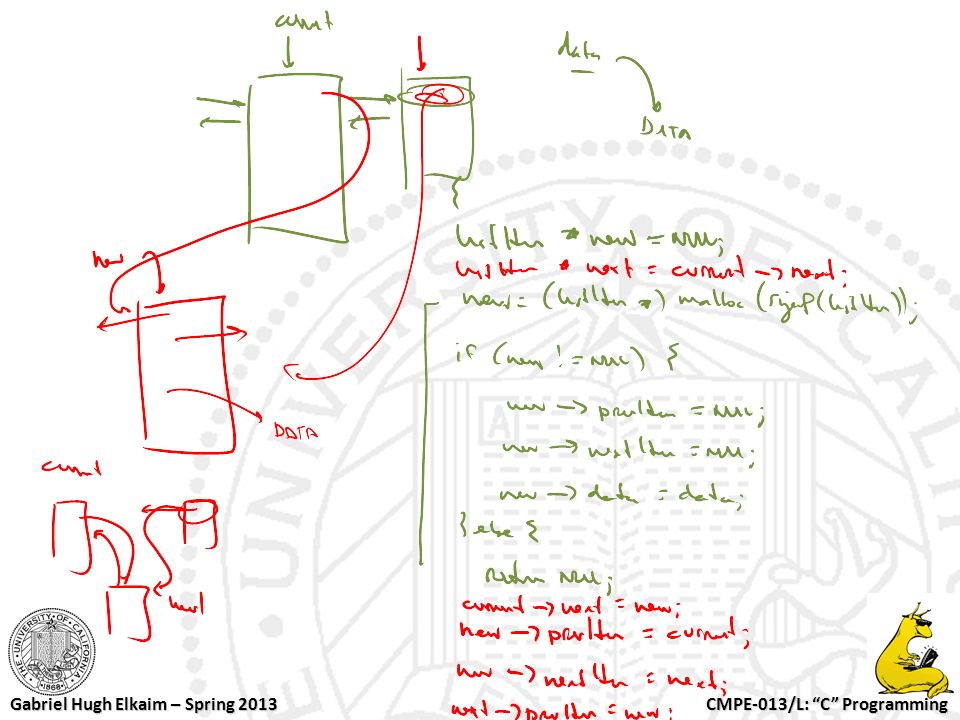 current
data
DATA
{
ListItem * new = NULL;
ListItem * next = current -> next;
new = (ListItem *) malloc (sizeof(ListItem));
new
if (new != NULL) {
new -> prevItem = NULL;
DATA
new -> nextItem = NULL;
current
new -> data = data;
} else {
return NULL;
next
current -> next = new;
new -> prevItem = current;
new -> nextItem = next;
next -> prevItem = new;
THE UNIVERSITY OF CALIFORNIA
1868
Gabriel Hugh Elkaim – Spring 2013
CMPE-013/L: “C” Programming